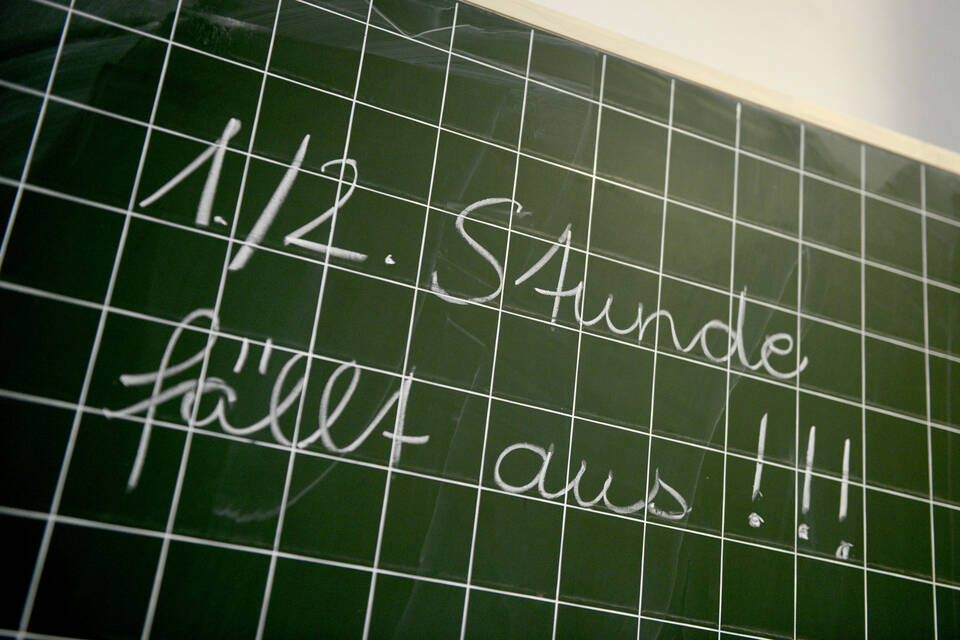 1./2. Stunde
fällt aus !!!